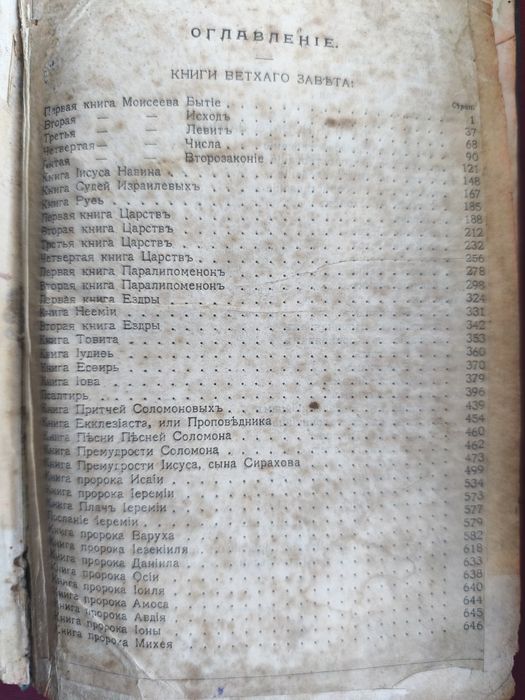 ОГЛАВЛЕНІЕ.
КНИГИ ВЕТХАГО ЗАВѢТА:
Стран.
Первая книга Моисеева Бытіе . . . 1
Вторая — — Исходъ . . . 37
Третья — — Левитъ . . . 68
Четвертая — — Числа . . . 90
Пятая — — Второзаконіе . . . 121
Книга Іисуса Навина . . . 148
Книга Судей Израилевыхъ . . . 167
Книга Руѳь . . . 185
Первая книга Царствъ . . . 188
Вторая книга Царствъ . . . 212
Третья книга Царствъ . . . 232
Четвертая книга Царствъ . . . 256
Первая книга Паралипоменонъ . . . 278
Вторая книга Паралипоменонъ . . . 298
Первая книга Ездры . . . 324
Книга Нееміи . . . 331
Вторая книга Ездры . . . 342
Книга Товита . . . 353
Книга Іудиѳь . . . 360
Книга Есѳирь . . . 370
Книга Іова . . . 379
Псалтирь . . . 396
Книга Притчей Соломоновыхъ . . . 439
Книга Екклезіаста, или Проповѣдника . . . 454
Книга Пѣсни Пѣсней Соломона . . . 460
Книга Премудрости Соломона . . . 462
Книга Премугрости Іисуса, сына Сирахова . . . 473
Книга пророка Исаіи . . . 499
Книга пророка Іереміи . . . 534
Книга Плачъ Іереміи . . . 573
Посланіе Іереміи . . . 577
Книга пророка Варуха . . . 579
Книга пророка Іезекіиля . . . 582
Книга пророка Даніила . . . 618
Книга пророка Осіи . . . 633
Книга пророка Іоиля . . . 638
Книга пророка Амоса . . . 640
Книга пророка Авдія . . . 644
Книга пророка Іоны . . . 645
Книга пророка Михея . . . 646